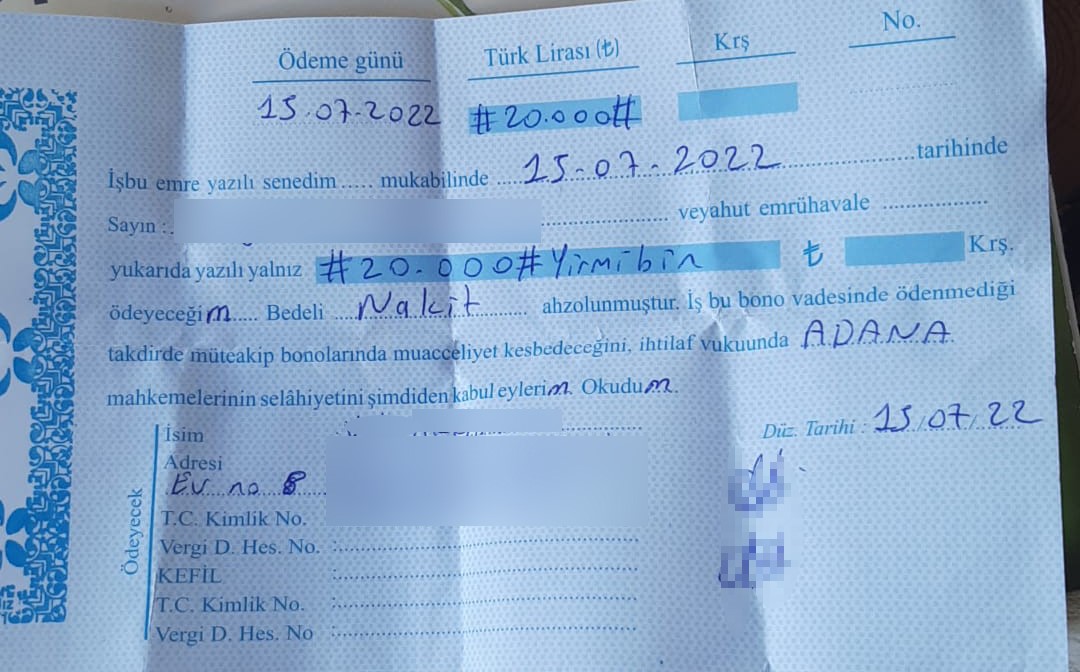 Ödeme günü Türk Lirası (₺) Krş No.
15.07.2022 #20.000#
İşbu emre yazılı senedim ..... mukabilinde ..... 15-07-2022 ..... tarihinde
Sayın :. ..... veyahut emrühavale .....
yukarıda yazılı yalnız #20.000# Yirmibin ₺ Krş.
ödeyeceğim..... Bedeli ... Nakit ..... ahzolunmuştur. İş bu bono vadesinde ödenmediği
takdirde müteakip bonolarında muacceliyet kesbedeceğini, ihtilaf vukuunda ADANA
mahkemelerinin selâhiyetini şimdiden kabul eylerim. Okudum.
Düz. Tarihi : 15/07/22
Ödeyecek
İsim
Adresi
Ev no 8
T.C. Kimlik No.
Vergi D. Hes. No. :
KEFİL :
T.C. Kimlik No. :
Vergi D. Hes. No :